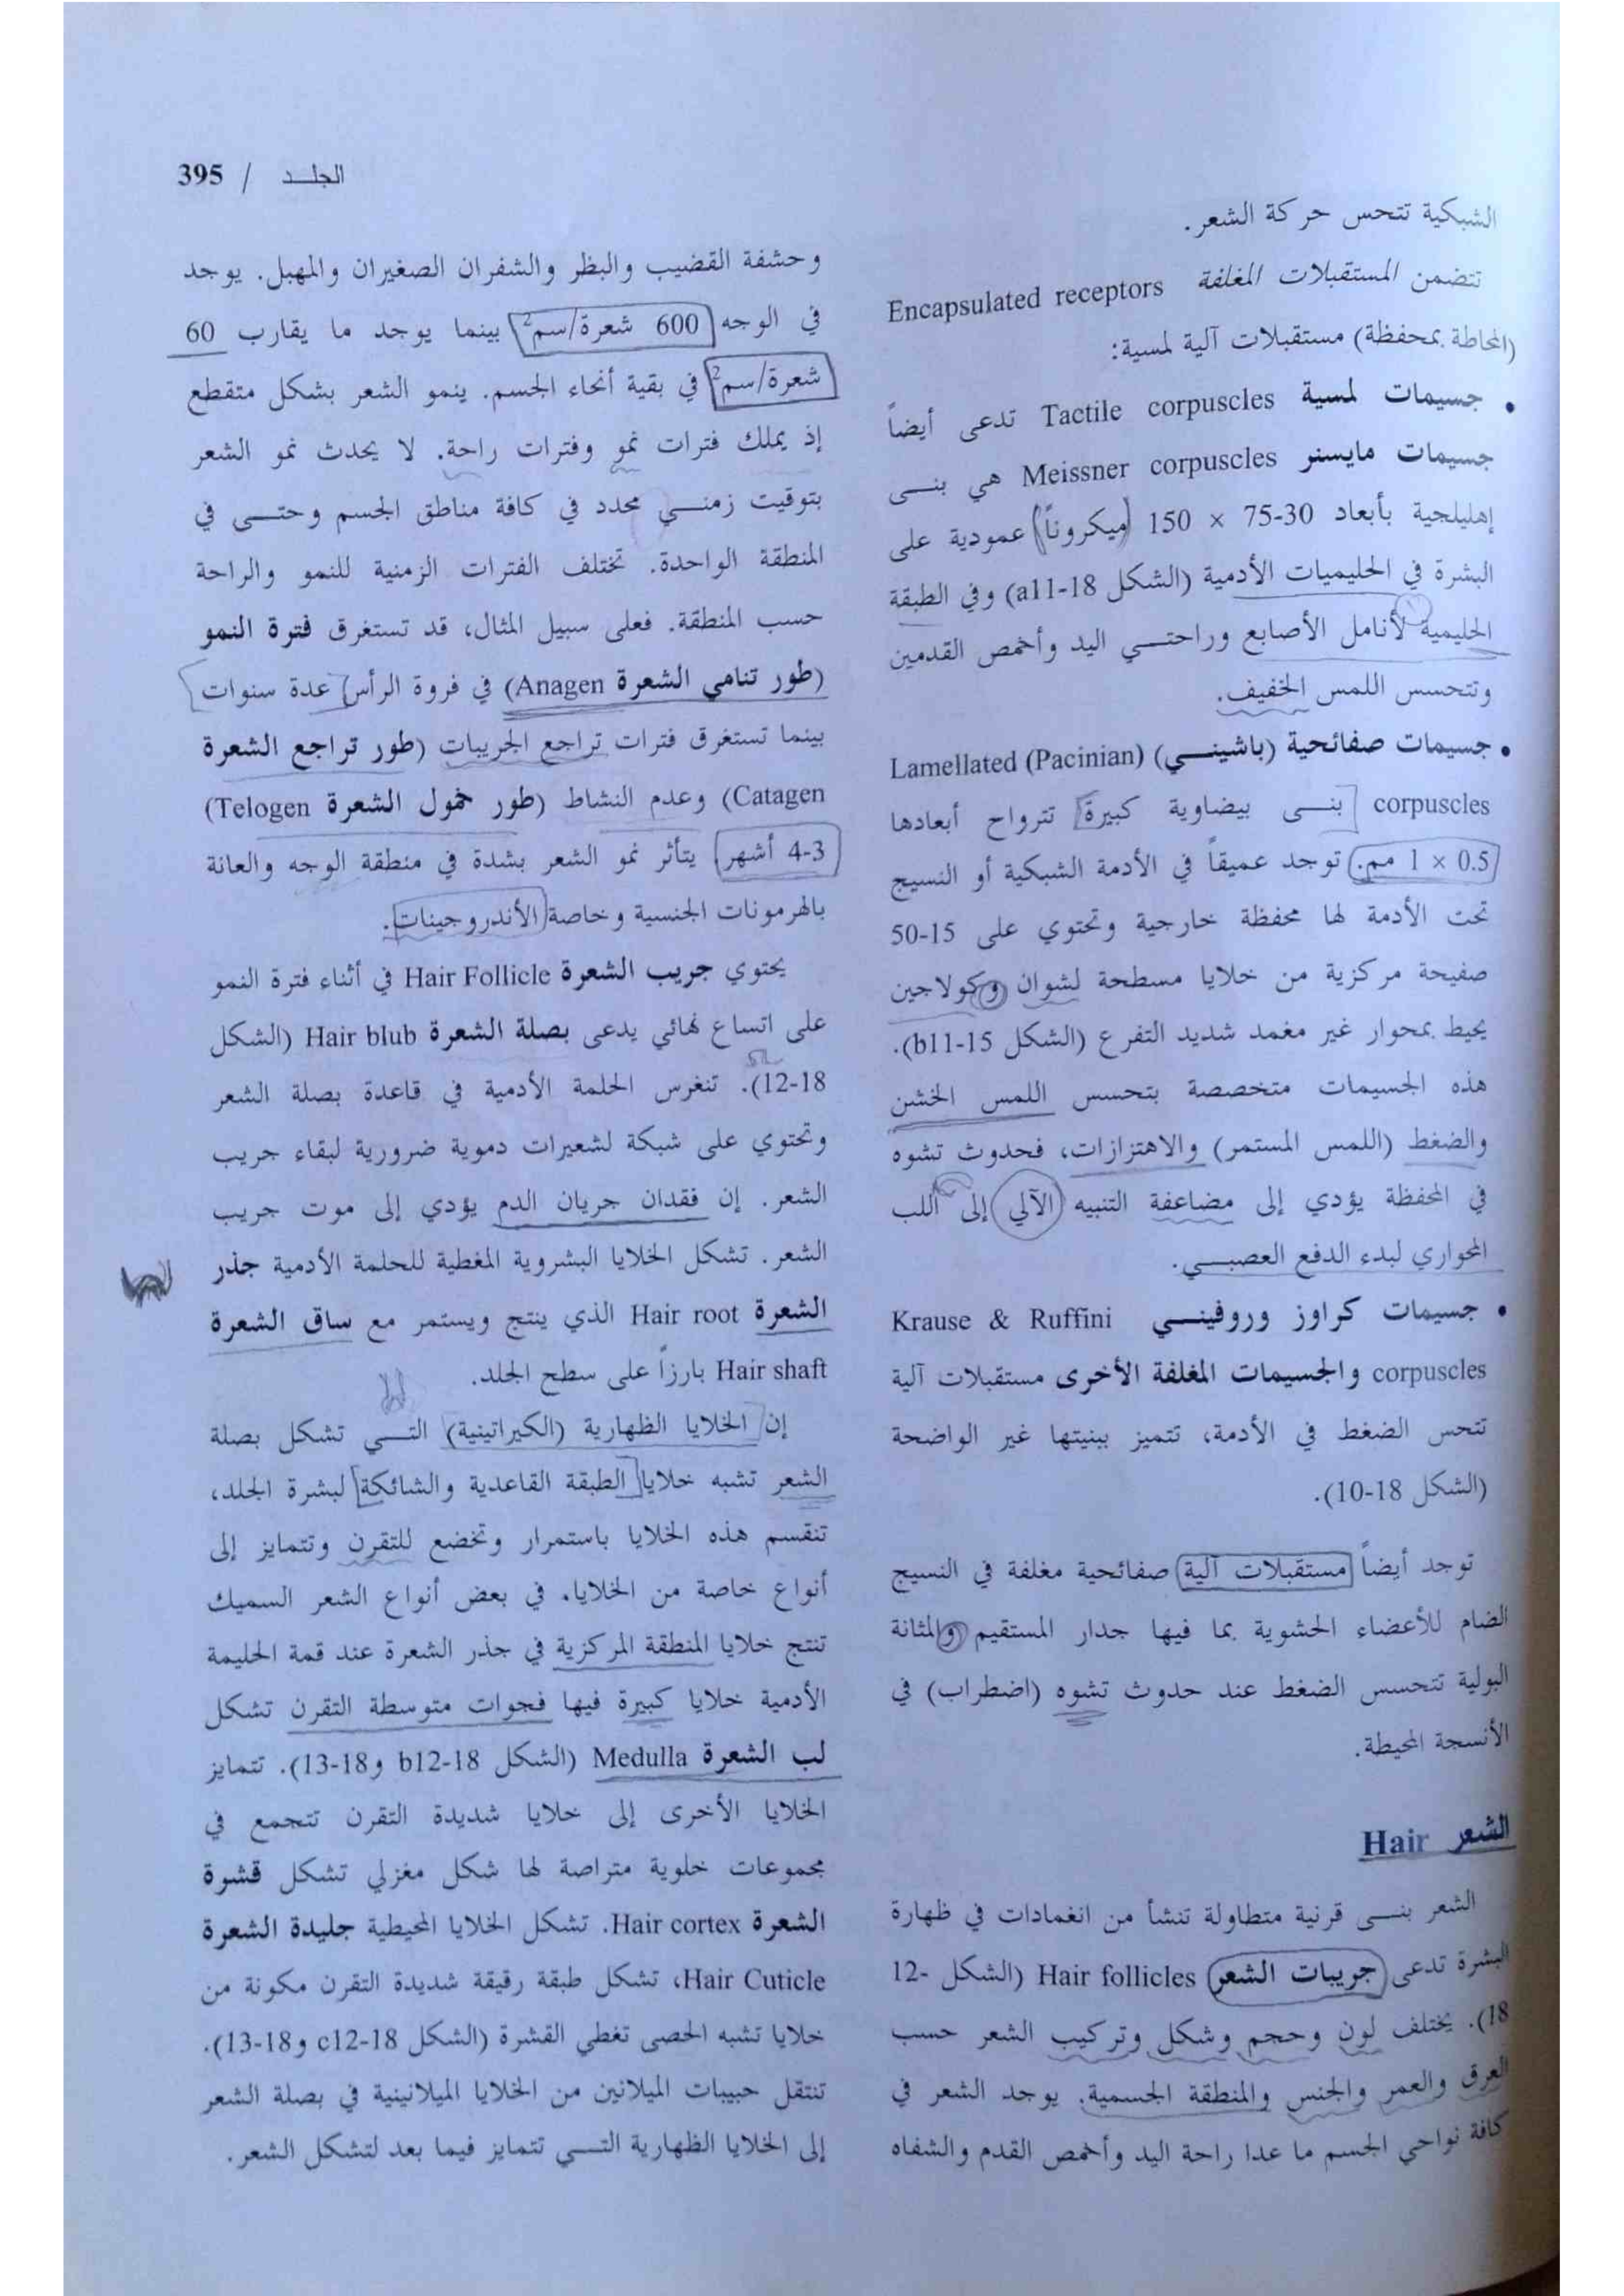 الجلـــد / 395
الشبكية تتحس حركة الشعر.
تتضمن المستقبلات المغلفة Encapsulated receptors
(المحاطة بمحفظة) مستقبلات آلية لمسية:
• جسيمات لمسية Tactile corpuscles تدعى أيضاً
جسيمات مايسنر Meissner corpuscles هي بنـــى
إهليلجية بأبعاد 30-75 × 150 (ميكروناً) عمودية على
البشرة في الحليميات الأدمية (الشكل 18-a11) وفي الطبقة
الحليمية لأنامل الأصابع وراحتـــي اليد وأخمص القدمين
وتتحسس اللمس الخفيف.
• جسيمات صفائحية (باشينـــي) Lamellated (Pacinian)
corpuscles بنـــى بيضاوية كبيرة تترواح أبعادها
0.5 × 1 مم. توجد عميقاً في الأدمة الشبكية أو النسيج
تحت الأدمة لها محفظة خارجية وتحتوي على 15-50
صفيحة مركزية من خلايا مسطحة لشوان وكولاجين
يحيط بمحوار غير مغمد شديد التفرع (الشكل 15-b11).
هذه الجسيمات متخصصة بتحسس اللمس الخشن
والضغط (اللمس المستمر) والاهتزازات، فحدوث تشوه
في المحفظة يؤدي إلى مضاعفة التنبيه الآلي إلى اللب
المحواري لبدء الدفع العصبـــي.
• جسيمات كراوز وروفينـــي Krause & Ruffini
corpuscles والجسيمات المغلفة الأخرى مستقبلات آلية
تتحس الضغط في الأدمة، تتميز ببنيتها غير الواضحة
(الشكل 18-10).
توجد أيضاً مستقبلات آلية صفائحية مغلفة في النسيج
الضام للأعضاء الحشوية بما فيها جدار المستقيم والمثانة
البولية تتحسس الضغط عند حدوث تشوه (اضطراب) في
الأنسجة المحيطة.
الشعر Hair
الشعر بنـــى قرنية متطاولة تنشأ من انغمادات في ظهارة
البشرة تدعى جريبات الشعر Hair follicles (الشكل 12-
18). يختلف لون وحجم وشكل وتركيب الشعر حسب
العرق والعمر والجنس والمنطقة الجسمية. يوجد الشعر في
كافة نواحي الجسم ما عدا راحة اليد وأخمص القدم والشفاه
وحشفة القضيب والبظر والشفران الصغيران والمهبل. يوجد
في الوجه 600 شعرة/سم2 بينما يوجد ما يقارب 60
شعرة/سم2 في بقية أنحاء الجسم. ينمو الشعر بشكل متقطع
إذ يملك فترات نمو وفترات راحة. لا يحدث نمو الشعر
بتوقيت زمنـــي محدد في كافة مناطق الجسم وحتـــى في
المنطقة الواحدة. تختلف الفترات الزمنية للنمو والراحة
حسب المنطقة. فعلى سبيل المثال، قد تستغرق فترة النمو
(طور تنامي الشعرة Anagen) في فروة الرأس عدة سنوات
بينما تستغرق فترات تراجع الجريبات (طور تراجع الشعرة
Catagen) وعدم النشاط (طور خمول الشعرة Telogen)
3-4 أشهر يتأثر نمو الشعر بشدة في منطقة الوجه والعانة
بالهرمونات الجنسية وخاصة الأندروجينات.
يحتوي جريب الشعرة Hair Follicle في أثناء فترة النمو
على اتساع نهائي يدعى بصلة الشعرة Hair blub (الشكل
18-12). تنغرس الحلمة الأدمية في قاعدة بصلة الشعر
وتحتوي على شبكة لشعيرات دموية ضرورية لبقاء جريب
الشعر. إن فقدان جريان الدم يؤدي إلى موت جريب
الشعر. تشكل الخلايا البشروية المغطية للحلمة الأدمية جذر
الشعرة Hair root الذي ينتج ويستمر مع ساق الشعرة
Hair shaft بارزاً على سطح الجلد.
إن الخلايا الظهارية (الكيراتينية) التـــي تشكل بصلة
الشعر تشبه خلايا الطبقة القاعدية والشائكة لبشرة الجلد،
تنقسم هذه الخلايا باستمرار وتخضع للتقرن وتتمايز إلى
أنواع خاصة من الخلايا. في بعض أنواع الشعر السميك
تنتج خلايا المنطقة المركزية في جذر الشعرة عند قمة الحليمة
الأدمية خلايا كبيرة فيها فجوات متوسطة التقرن تشكل
لب الشعرة Medulla (الشكل 18-b12 و18-13). تتمايز
الخلايا الأخرى إلى خلايا شديدة التقرن تتجمع في
مجموعات خلوية متراصة لها شكل مغزلي تشكل قشرة
الشعرة Hair cortex. تشكل الخلايا المحيطية جليدة الشعرة
Hair Cuticle، تشكل طبقة رقيقة شديدة التقرن مكونة من
خلايا تشبه الحصى تغطي القشرة (الشكل 18-c12 و18-13).
تنتقل حبيبات الميلانين من الخلايا الميلانينية في بصلة الشعر
إلى الخلايا الظهارية التـــي تتمايز فيما بعد لتشكل الشعر.